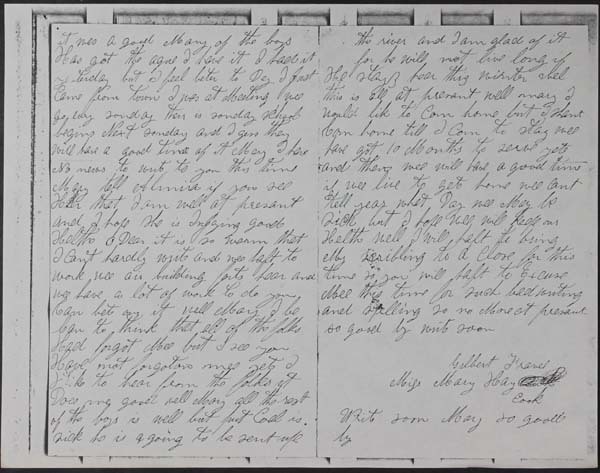 it wes a good Many of the boys
Has got the ague I have it I had it
yesturday but I feel bete to Day I just
Came from town I wes at Meeting wee
go evry sonday their is sonday school
begins Next sonday and I gess they
will have a good time of it Mary I have
No news to write to you this time
Mary tell Almira if you see
Her that I am well at presant
and I hope she is Injoying good
Helth O Dear it is so warm that
I Can't hardly write and wee haft to
work wee air building forts hear and
wee have a lot of work to do you
Can bet on it well Mary I be
Gan to think that all of the folks
Had forgot Mee but I see you
Have not forgotten mee yet I
Like to hear from the folks it
Does mee good well Mary all the rest
of the boys is well but just Cook is
sick he is a going to be sent up
the river and I am glad of it
for he will not live long if
He stays hear this winter well
this is all at presant well mary I
would like to Com home but I shant
Com home till I Com to stay wee
have got 10 Months to serve yet
and then wee will have a good time
if wee live to get home wee cant
tell year what Day wee May be
sick but I hope wee will keep our
Helth well I will haft to bring
My scribling to a Close for this
time so you will haft to Excuse
Mee this time for such bad writing
and spelling so no More at presant
so good by write soon
Gilbert
Miss Mary Hay
Cook
Write soon Mary so good
by